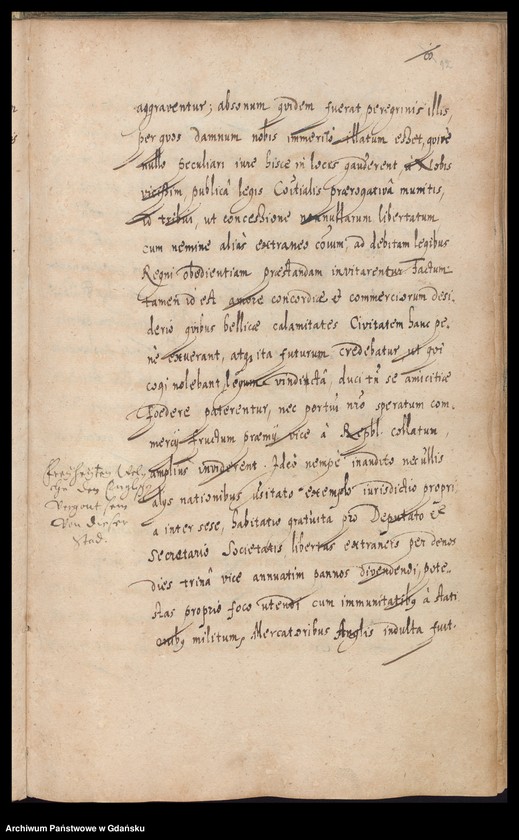 92
aggraventur; absonum quidem fuerat, peregrinis illis,
per quos damnum nobis immerito illatum esset, quive
nullo peculiari iure hisce in locis gauderent, a Nobis
vicissim, publica legis Comitialis praerogativa munitis,
id tribui, ut concessione nonnullarum libertatum
cum nemine alias extraneo coium, ad debitam legibus
Regni obedientiam praestandam invitarentur. Factum
tamen id est amore concordiae et commerciorum desi-
derio quibus bellicae calamitates Civitatem hanc pe-
ne exuerant, atq, ita futurum credebatur, ut qui
cogi nolebant, legum vindicta, duci tn se amicitiae
foedere paterentur, nec portui nro speratum com-
mercij fructum praemij vice à Repbl. collatum,
amplius inviderent. Ideò nempe inaudito nec ullis
alijs nationibus usitato exemplo iurisdictio propri-
a inter sese, habitatio gratuita pro Deputato et
Secretario Societatis libertas extraneis per denos
dies trina vice annuatim pannos divendendi, pote-
stas proprio foco utendi cum immunitatibq à stati-
onibq militum, Mercatoribus Anglis indulta fuit.
Freyheytten
den Englischen
vergont sein
von dieser
Stad.
Archiwum Państwowe w Gdańsku